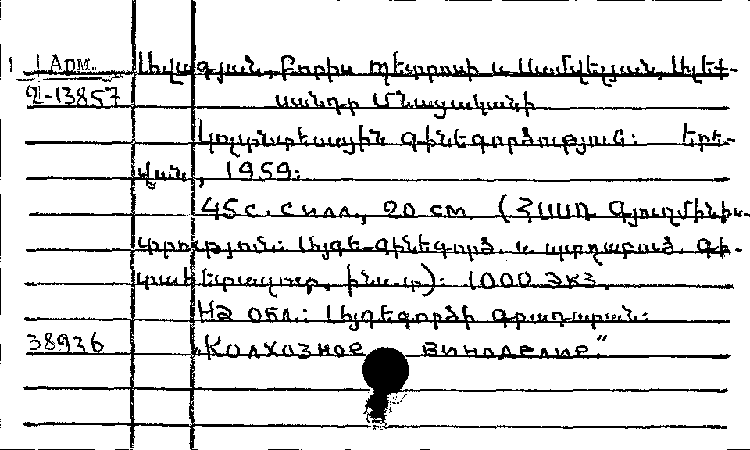 1 Арм.
2-13857
Այվազյան, Բորիս Պետրոսի և Սամվելյան, Ալեք-
սանդր Մնացականի
Կոլտնտեսային գինեգործություն: Երե-
վան, 1959:
45 с. с илл., 20 см. (ՀՍՍՌ Գյուղմինիս-
տրություն: Այգե-գինեգործ. և պտղաբուծ. գի-
տահետազոտ. ինս-տ): 1000 экз.
На обл.: Այգեգործի գրադարան:
38936
„Колхозное виноделие."